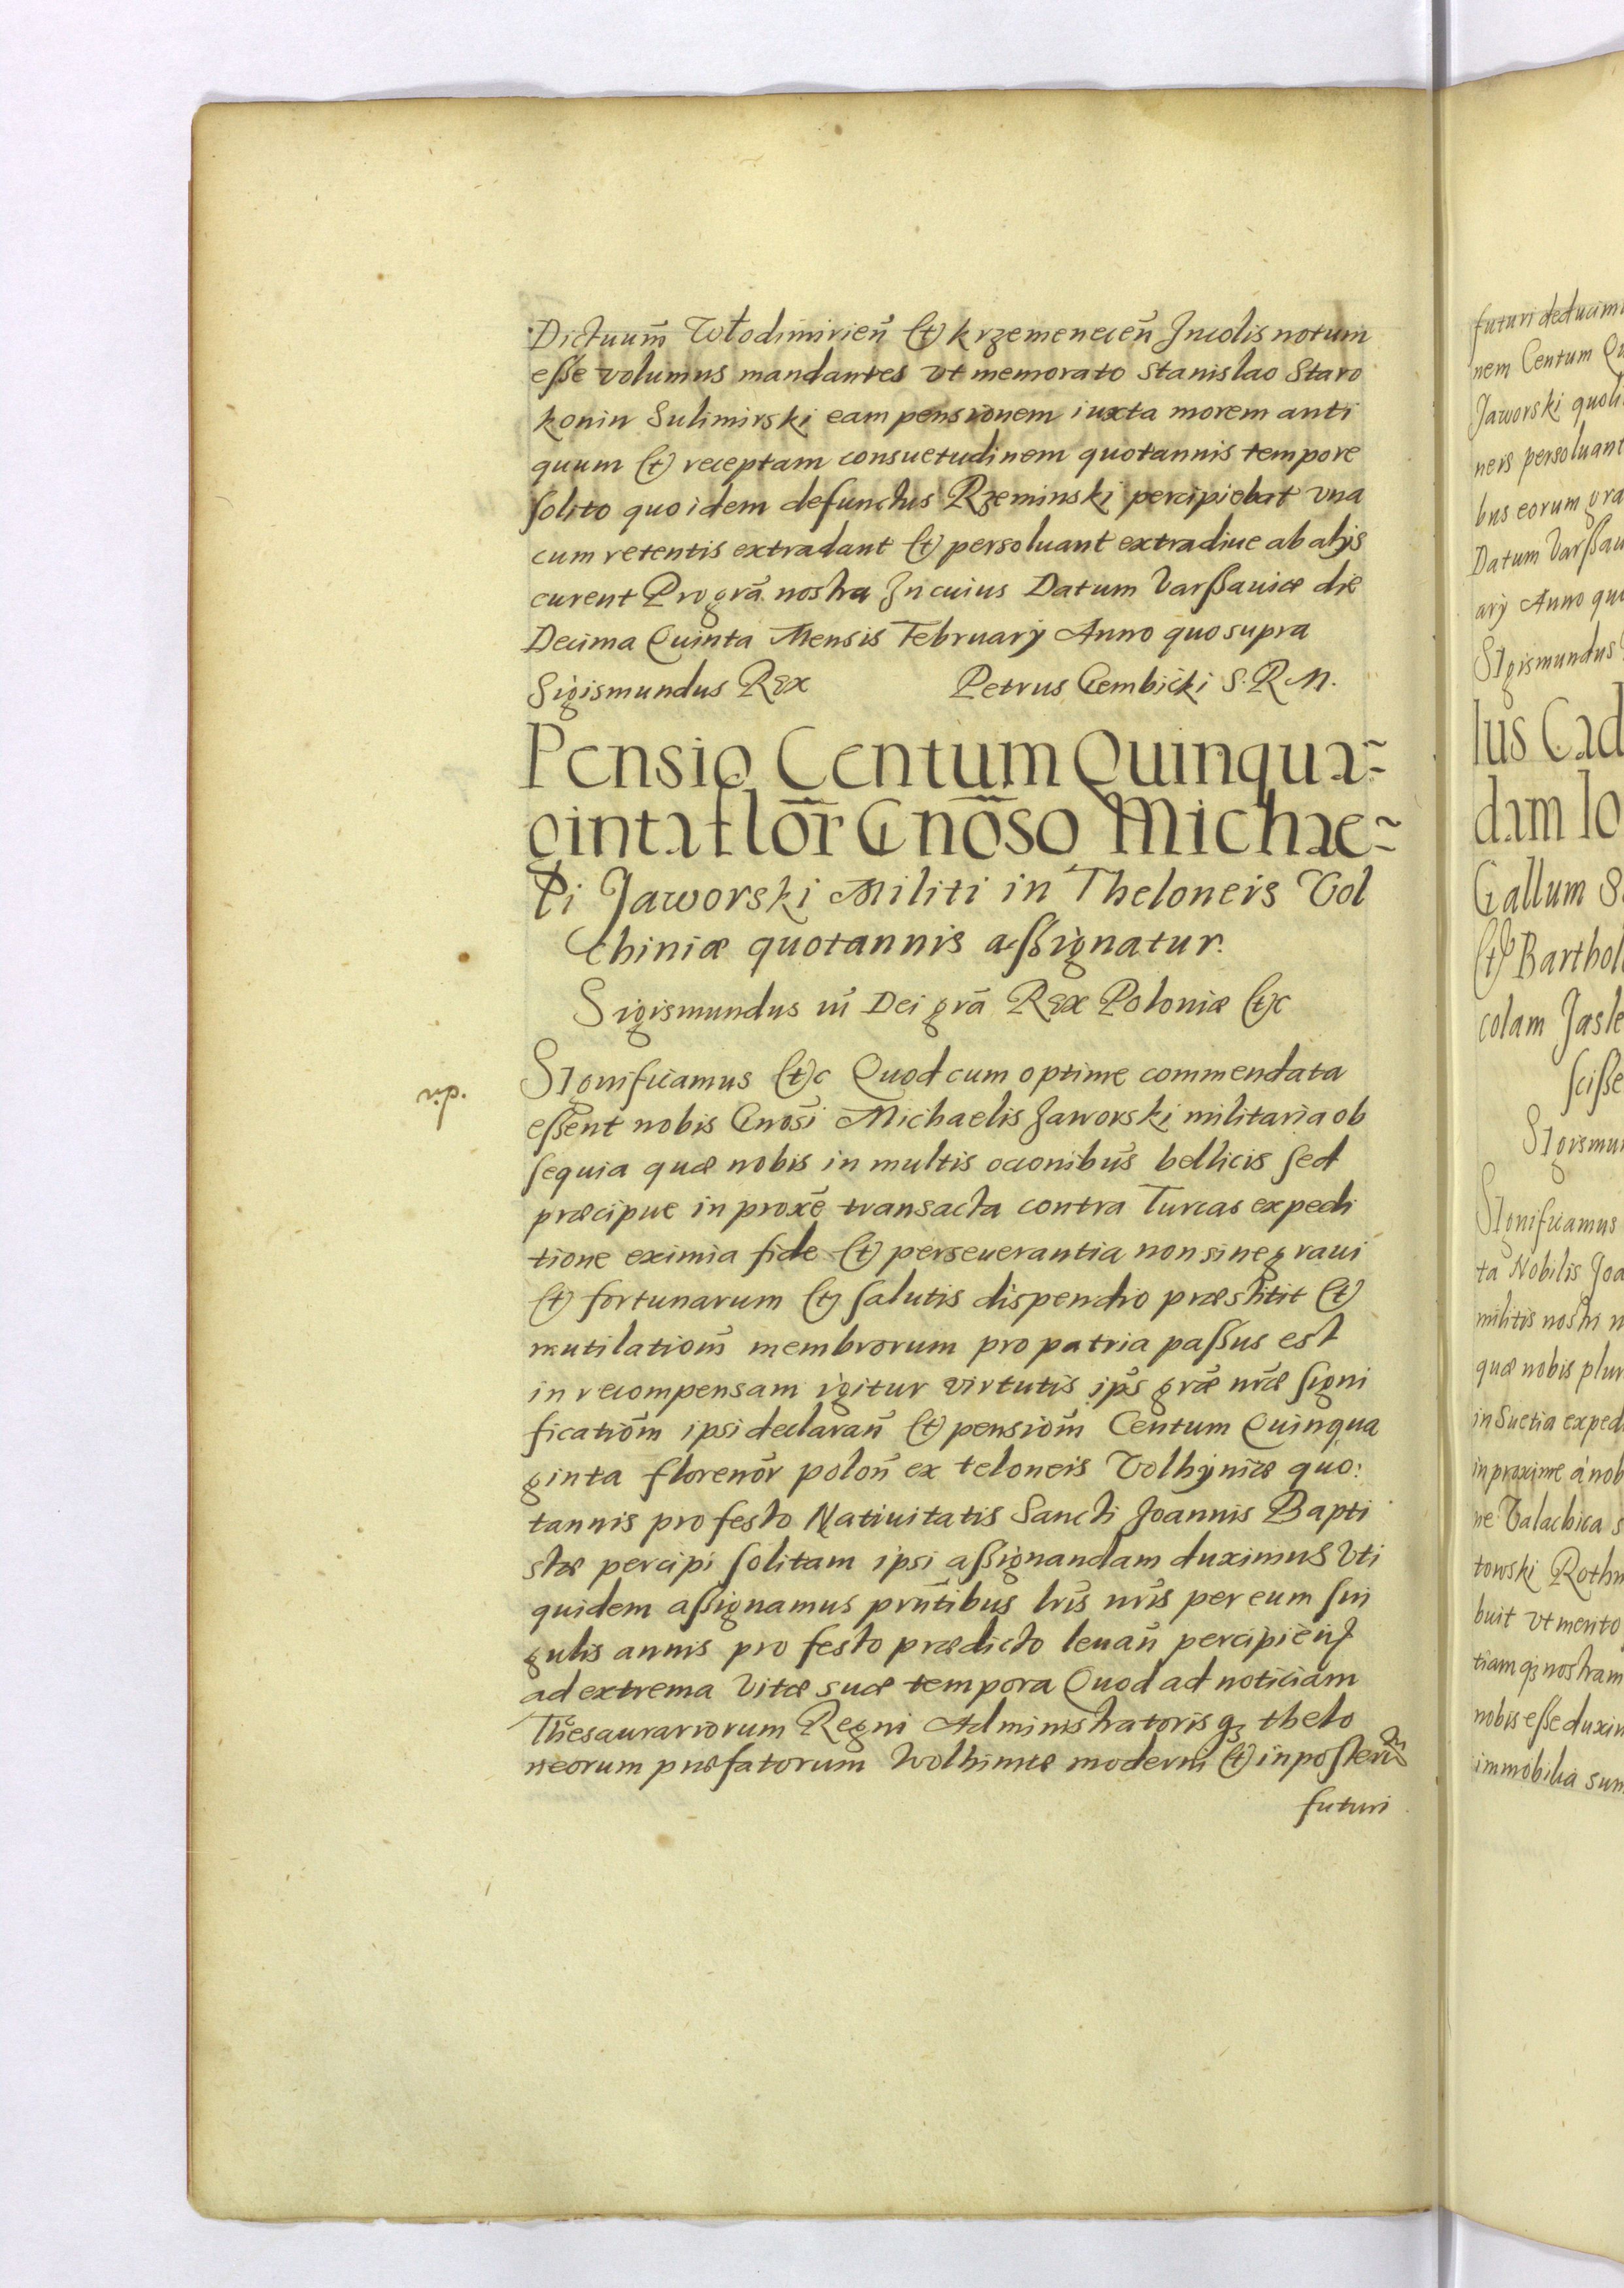 Dictuum̃ Włodimirień (et) krzemenecen̄ Incolis notum
esse volumus mandantes vt memorato Stanislao Staro
konin Sulimirski eam pensionem iuxta morem anti
quum (et) receptam consuetudinem quotannis tempore
solito quo idem defunctus Rzeminski percipiebat vna
cum retentis extradant (et) persoluant extradiue ab alijs
curent Pro grã nostra In cuius Datum Varssauiæ die
Decima Quinta Mensis Februarij Anno quo supra
Sigismundus Rex Petrus Gembicki S. R. M.
Pensio Centum Quinqua=
ginta flor̃ Gnõso Michae=
li Jaworski Militi in Theloneis Vol
chiniæ quotannis assignatur.
Sigismundus iij Dei grã Rex Poloniæ (et)c
dir.
SIgnificamus (et)c Quod cum optime commendata
essent nobis Gnosi Michaelis Jaworski militaria ob
sequia quæ nobis in multis occonibus bellicis sed
præcipue in proxe transacta contra Turcas expedi
tione eximia fide (et) perseuerantia non sine graui
(et) fortunarum (et) salutis dispendio præstitit (et)
mutilatiom̃ membrorum pro patria passus est
in recompensam igitur virtutis ips̃ grãe nrãe signi
ficatiõm ipsi declaran̄ (et) pensiõm Centum Quinqua
ginta florenõr polon̄ ex teloneis Volhyniæ quo:
tannis pro festo Natiuitatis Sancti Joannis Bapti
stæ percipi solitam ipsi assignandam duximus Vti
quidem assignamus prñtibus lris̃ nris̃ per eum sin
gulis annis pro festo prædicto leuan̄ percipien̄q
ad extrema vitæ suæ tempora Quod ad noticiam
Thesaurariorum Regni Administratoris qȝ thelo
neorum præfatorum Wolhiniæ moderni (et) inposterũ
futuri
futuri deducim
nem Centum Qu
Jaworski quoli
neis persoluant
bus eorum gra
Datum Varssau
arij Anno quo
SIgismundus
lus Cad
dam Io
Gallum S
(et) Barthol
colam Jasle
scisse
SIgismun
SIgnificamus
ta Nobilis Joa
militis nostri n
quæ nobis plur
in Suetia exped
in proxime á nob
ne Valachica s
towski Rothm
buit vt merito
tiam qȝ nostram
nobis esse duxim
immobilia sum